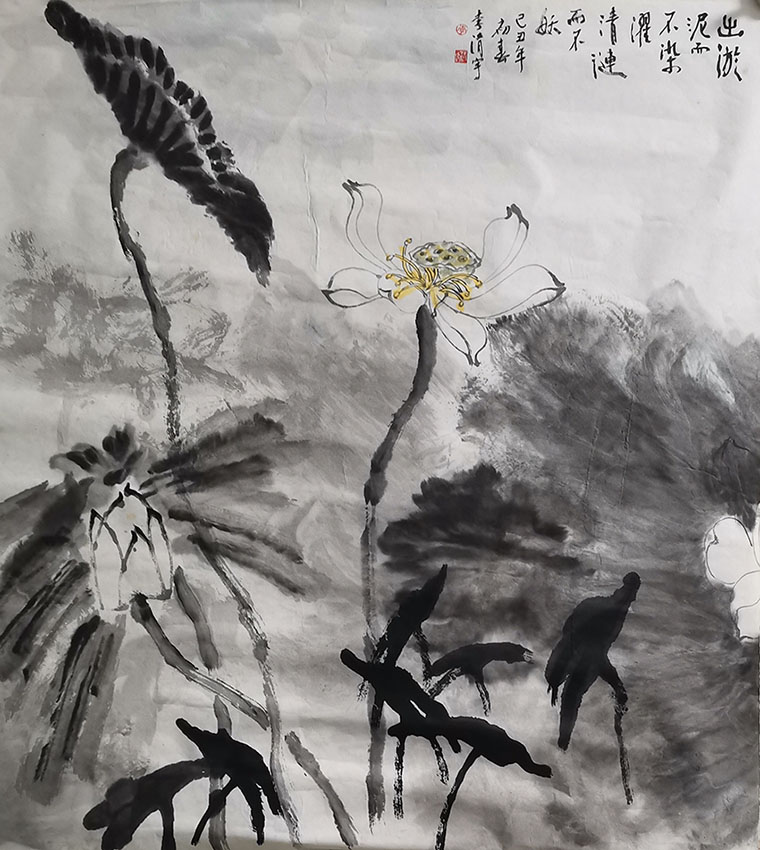 出淤
泥而
不染
濯
清漣
而不
妖
己丑年
初春
李